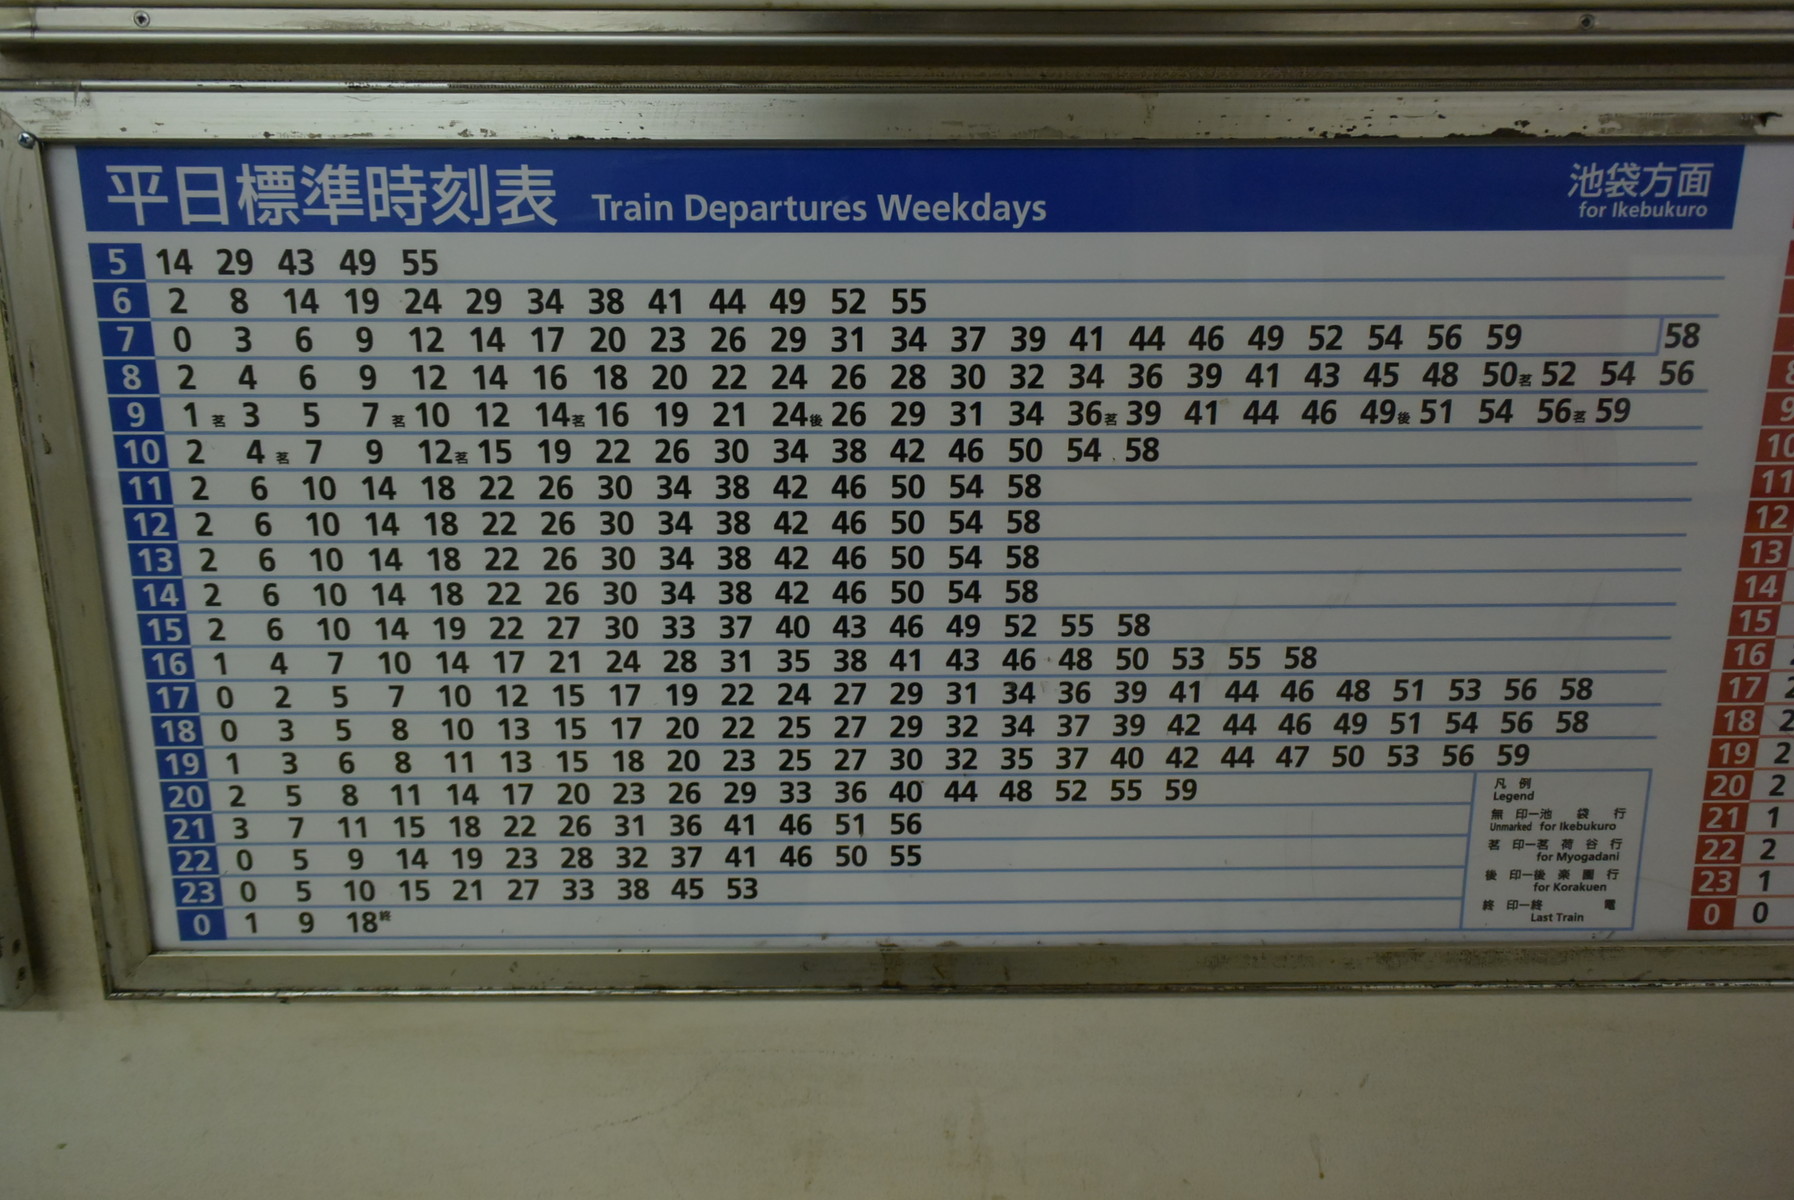 平日標準時刻表 Train Departures Weekdays 池袋方面
for Ikebukuro
5 14 29 43 49 55
6 2 8 14 19 24 29 34 38 41 44 49 52 55
7 0 3 6 9 12 14 17 20 23 26 29 31 34 37 39 41 44 46 49 52 54 56 59 58
8 2 4 6 9 12 14 16 18 20 22 24 26 28 30 32 34 36 39 41 43 45 48 50茗 52 54 56
9 1茗 3 5 7茗 10 12 14茗 16 19 21 24後 26 29 31 34 36茗 39 41 44 46 49後 51 54 56茗 59
10 2 4茗 7 9 12茗 15 19 22 26 30 34 38 42 46 50 54 58
11 2 6 10 14 18 22 26 30 34 38 42 46 50 54 58
12 2 6 10 14 18 22 26 30 34 38 42 46 50 54 58
13 2 6 10 14 18 22 26 30 34 38 42 46 50 54 58
14 2 6 10 14 18 22 26 30 34 38 42 46 50 54 58
15 2 6 10 14 19 22 27 30 33 37 40 43 46 49 52 55 58
16 1 4 7 10 14 17 21 24 28 31 35 38 41 43 46 48 50 53 55 58
17 0 2 5 7 10 12 15 17 19 22 24 27 29 31 34 36 39 41 44 46 48 51 53 56 58
18 0 3 5 8 10 13 15 17 20 22 25 27 29 32 34 37 39 42 44 46 49 51 54 56 58
19 1 3 6 8 11 13 15 18 20 23 25 27 30 32 35 37 40 42 44 47 50 53 56 59
20 2 5 8 11 14 17 20 23 26 29 33 36 40 44 48 52 55 59
21 3 7 11 15 18 22 26 31 36 41 46 51 56
22 0 5 9 14 19 23 28 32 37 41 46 50 55
23 0 5 10 15 21 27 33 38 45 53
0 1 9 18終
凡例
Legend
無印ー池袋行
Unmarked for Ikebukuro
茗印ー茗荷谷行
for Myogadani
後印ー後楽園行
for Korakuen
終印ー終電
Last Train
8
9
10
11
12
13
14
15
16
17 2
18 2
19 2
20 2
21 1
22 2
23 1
0 0